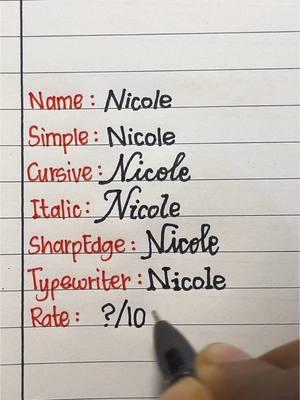 Name : Nicole
Simple : Nicole
Cursive : Nicole
Italic : Nicole
SharpEdge : Nicole
Typewriter : Nicole
Rate : ?/10